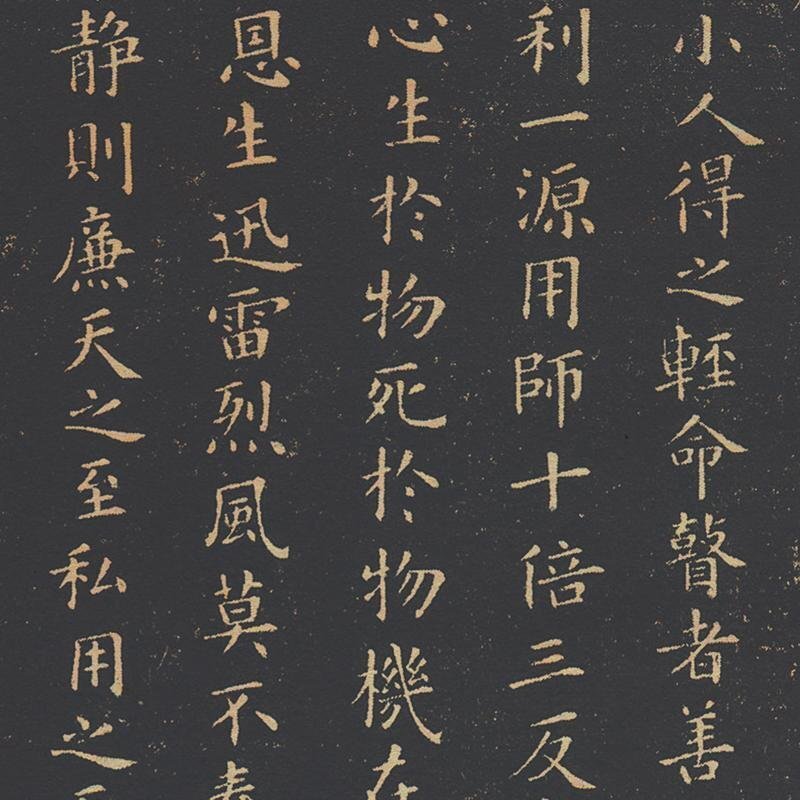 小人得之輕命瞽者善
利一源用師十倍三反
心生於物死於物機在
恩生迅雷烈風莫不蠢
静則廉天之至私用之至